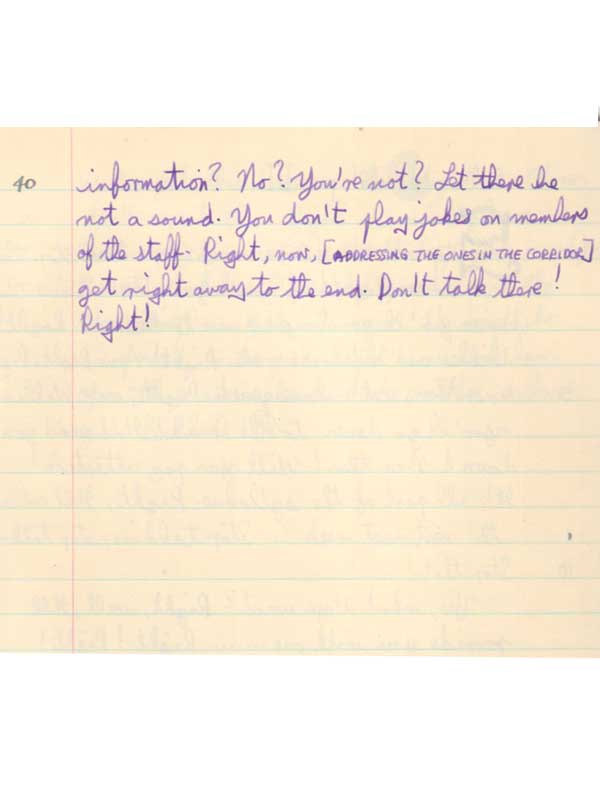 40 information? No? You're not? Let there be
not a sound. You don't play jokes on members
of the staff. Right, now, [ADDRESSING THE ONES IN THE CORRIDOR]
get right away to the end. Don't talk there!
Right!